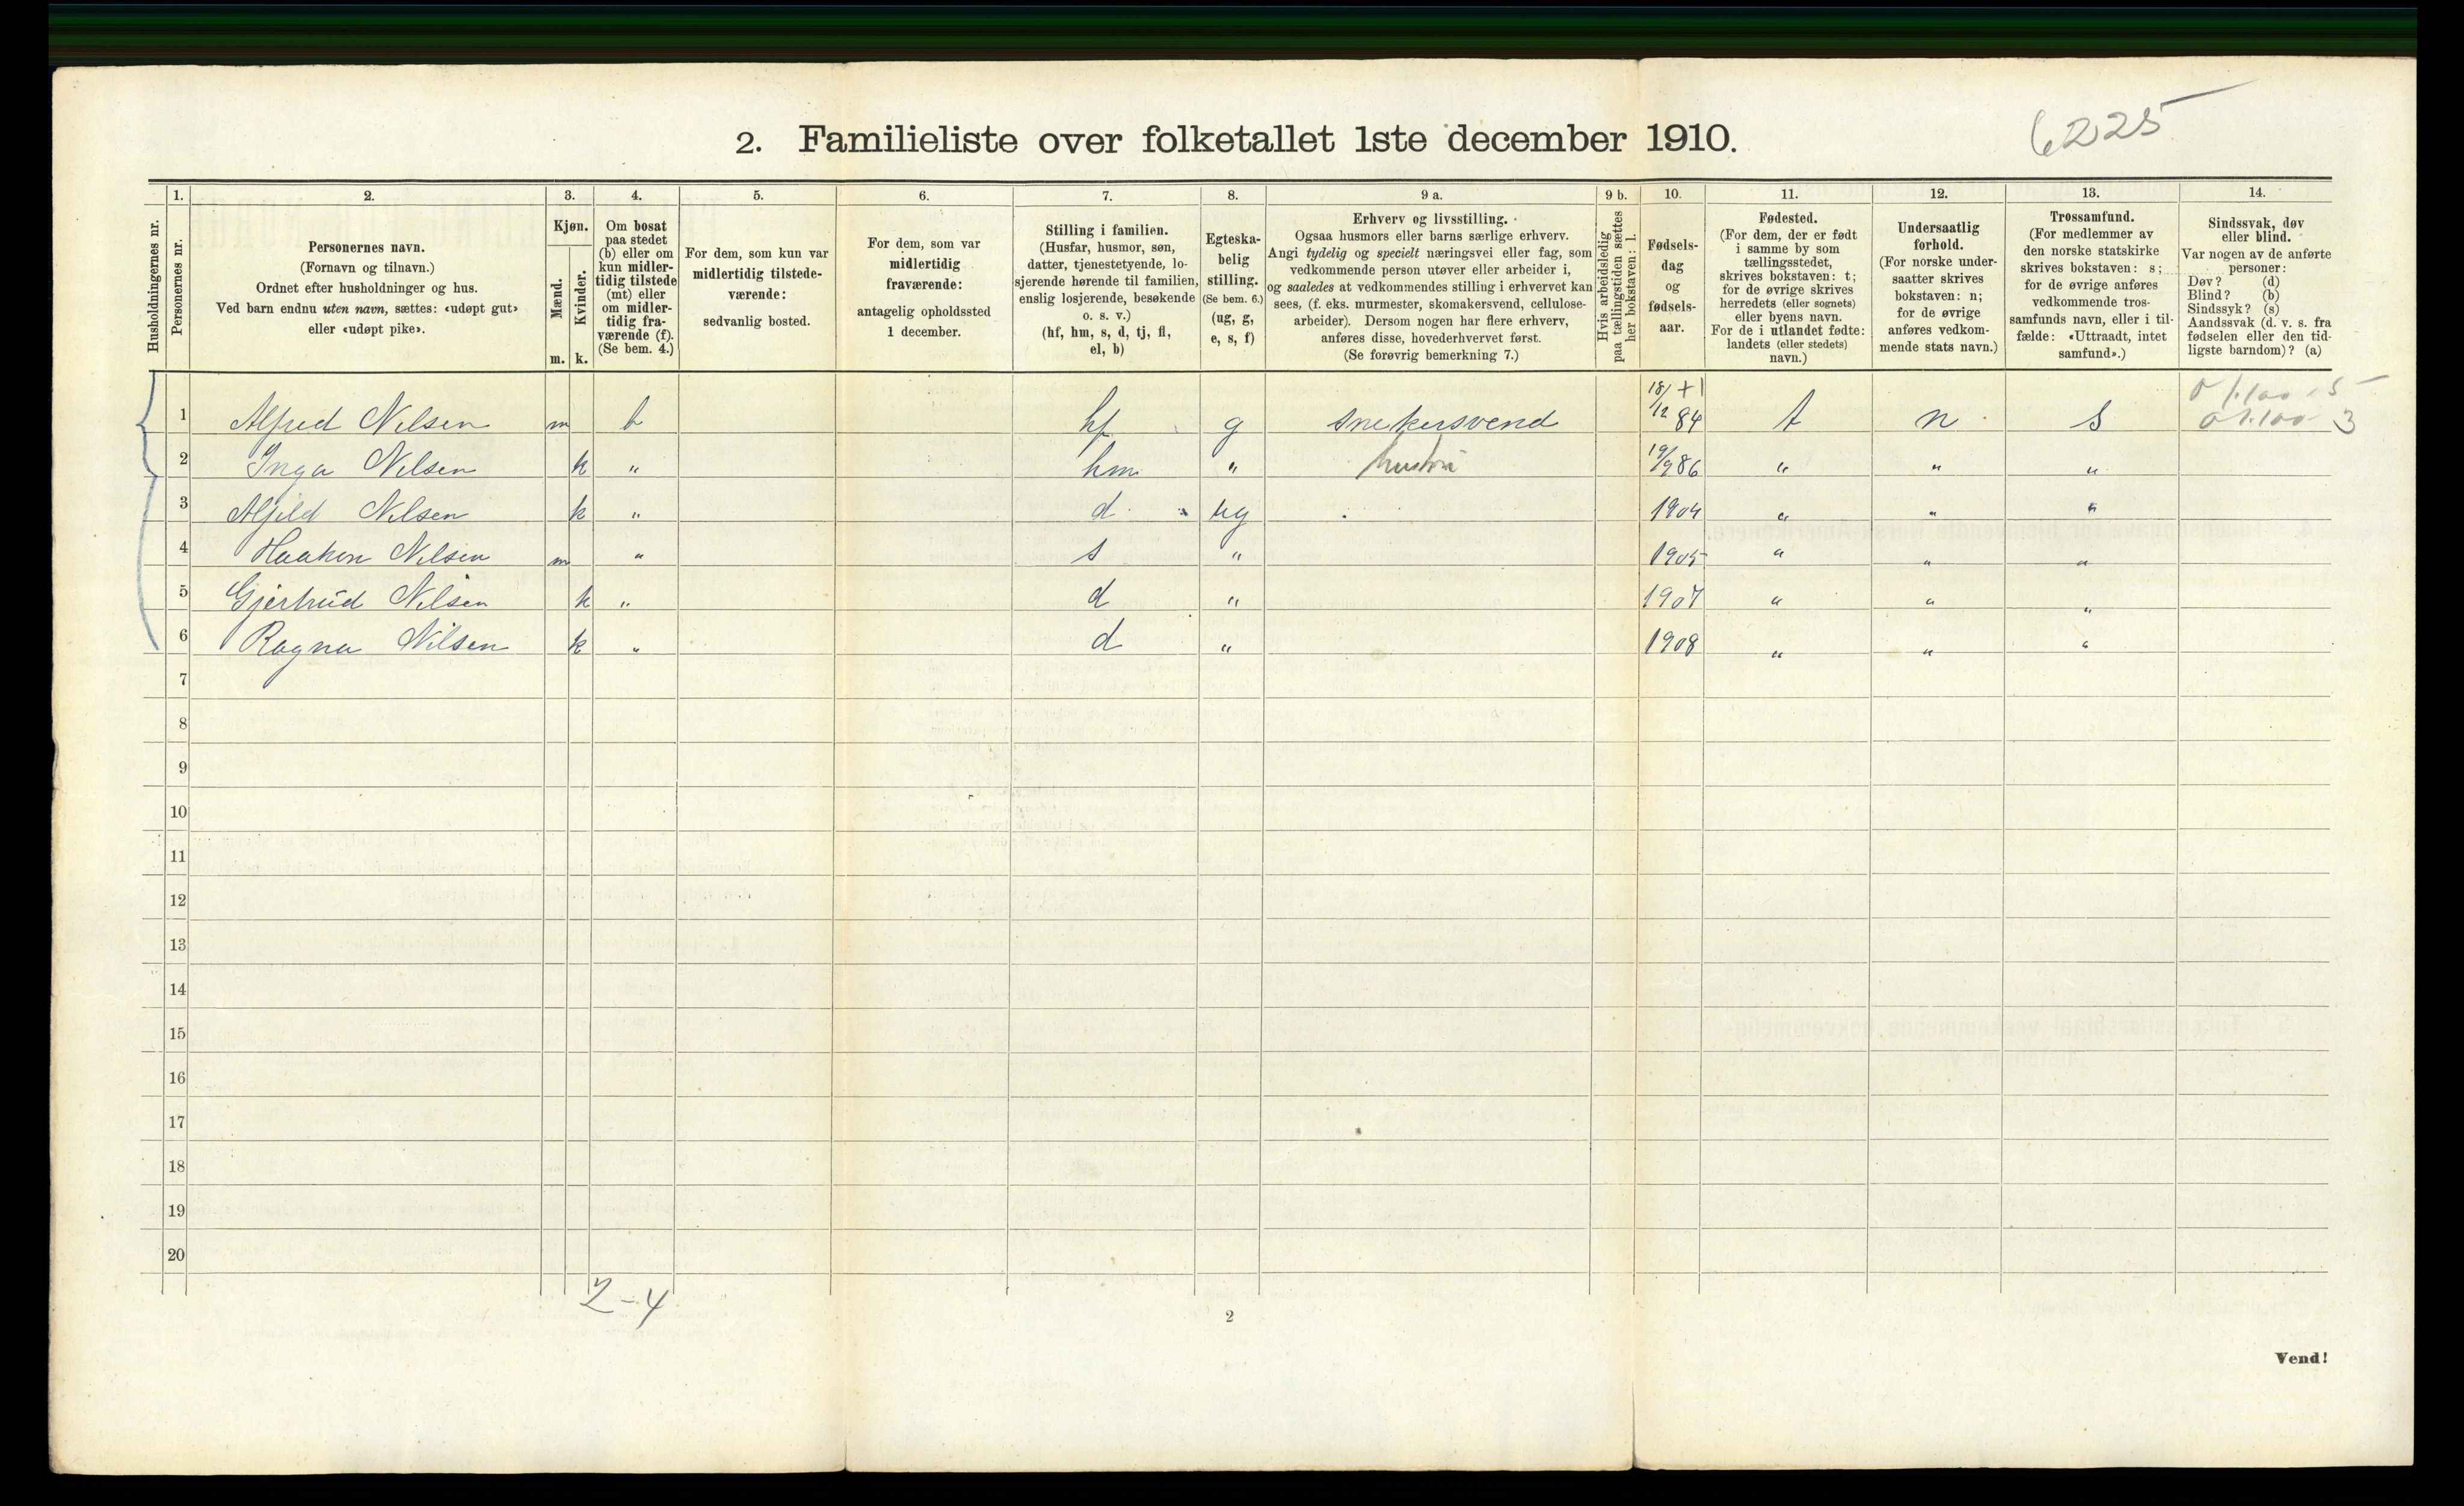 6225
2. Familieliste over folketallet 1ste december 1910.
1. 2. 3. 4. 5. 6. 7. 8. 9 a. 9 b. 10. 11. 12. 13. 14.
Husholdningernes nr.
Personernes nr.
Personernes navn.
(Fornavn og tilnavn.)
Ordnet efter husholdninger og hus.
Ved barn endnu uten navn, sættes: «udøpt gut»
eller «udøpt pike».
Kjøn.
Mænd.
Kvinder.
m. k.
Om bosat
paa stedet
(b) eller om
kun midler-
tidig tilstede
(mt) eller
om midler-
tidig fra-
værende (f).
(Se bem. 4.)
For dem, som kun var
midlertidig tilstede-
værende:
sedvanlig bosted.
For dem, som var
midlertidig
fraværende:
antagelig opholdssted
1 december.
Stilling i familien.
(Husfar, husmor, søn,
datter, tjenestetyende, lo-
sjerende hørende til familien,
enslig losjerende, besøkende
o. s. v.)
(hf, hm, s, d, tj, fl,
el, b)
Egteska-
belig
stilling.
(Se bem. 6.)
(ug, g,
e, s, f)
Erhverv og livsstilling.
Ogsaa husmors eller barns særlige erhverv.
Angi tydelig og specielt næringsvei eller fag, som
vedkommende person utøver eller arbeider i,
og saaledes at vedkommendes stilling i erhvervet kan
sees, (f. eks. murmester, skomakersvend, cellulose-
arbeider). Dersom nogen har flere erhverv,
anføres disse, hovederhvervet først.
(Se forøvrig bemerkning 7.)
Hvis arbeidsledig
paa tællingstiden sættes
her bokstaven: l.
Fødsels-
dag
og
fødsels-
aar.
Fødested.
(For dem, der er født
i samme by som
tællingsstedet,
skrives bokstaven: t;
for de øvrige skrives
herredets (eller sognets)
eller byens navn.
For de i utlandet fødte:
landets (eller stedets)
navn.)
Undersaatlig
forhold.
(For norske under-
saatter skrives
bokstaven: n;
for de øvrige
anføres vedkom-
mende stats navn.)
Trossamfund.
(For medlemmer av
den norske statskirke
skrives bokstaven: s;
for de øvrige anføres
vedkommende tros-
samfunds navn, eller i til-
fælde: «Uttraadt, intet
samfund».)
Sindssvak, døv
eller blind.
Var nogen av de anførte
personer:
Døv? (d)
Blind? (b)
Sindssyk? (s)
Aandssvak (d. v. s. fra
fødselen eller den tid-
ligste barndom)? (a)
1 Alfred Nilsen m b hf g snekersvend 18/12 84 t n s
2 Inga Nilsen k " hm " hustru 19/9 86 " " "
3 Alfild Nilsen k " d ug 1904 " " "
4 Haakon Nilsen m " s " 1905 " " "
5 Gjertrud Nilsen k " d " 1907 " " "
6 Ragna Nilsen k " d " 1908 " " "
7
8
9
10
11
12
13
14
15
16
17
18
19
20
2-4
2
Vend!